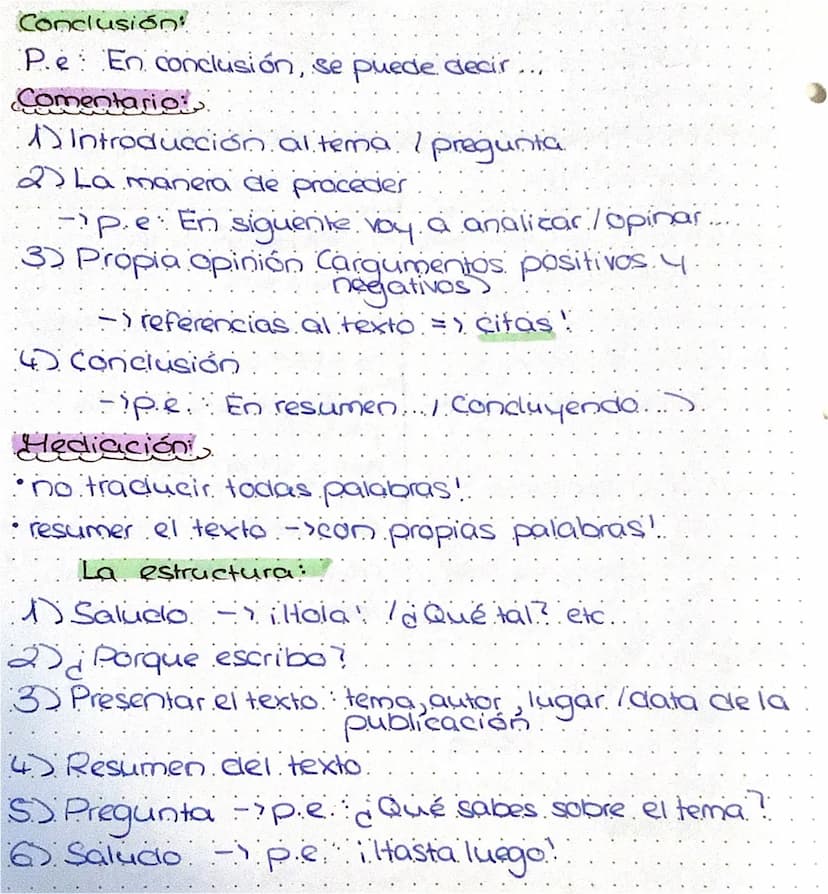 Conclusión:
P.e: En conclusión, se puede decir...
Comentario:
1) Introducción al tema / pregunta
2) La manera de proceder
-> p.e: En siguente voy a analizar / opinar...
3) Propia opinión (argumentos positivos y
negativos)
-> referencias al texto => citas!
4) Conclusión
-> p.e.: En resumen... / Concluyendo...)
Mediación:
• no traducir todas palabras!
• resumer el texto -> con propias palabras!
La estructura:
1) Saludo -> ¡Hola! / ¿Qué tal? etc.
2) ¿Porque escribo?
3) Presentar el texto: tema, autor, lugar / data de la
publicación
4) Resumen del texto
5) Pregunta -> p.e.: ¿Qué sabes sobre el tema?
6) Saludo -> p.e. ¡Hasta luego!